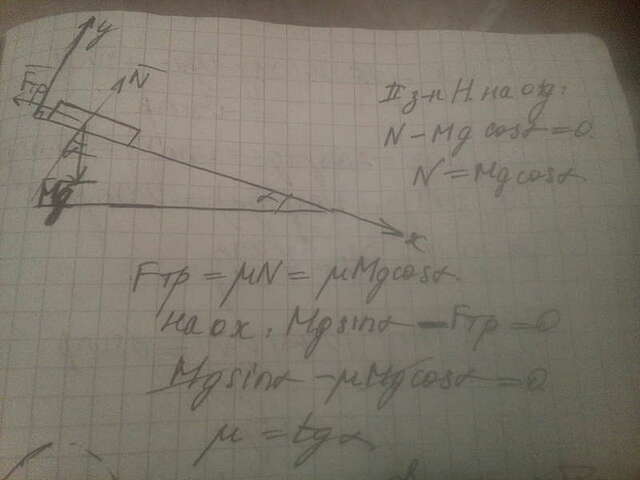 y
Fтр
N
α
Mg
α
x
II з-н Н. на оу:
N - Mg cosα = 0.
N = Mg cosα.
Fтр = μN = μMgcosα.
на ох: Mgsinα - Fтр = 0
Mgsinα - μMgcosα = 0
μ = tgα